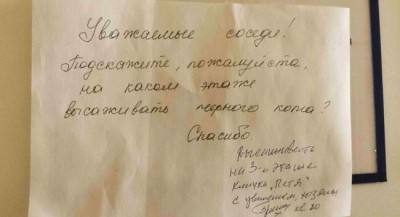 Уважаемые соседи!
Подскажите, пожалуйста,
на каком этаже
высаживать черного кота?
Спасибо.
на 3-м этаже
кличка "Петя"
с уважением, хозяин
кв 20